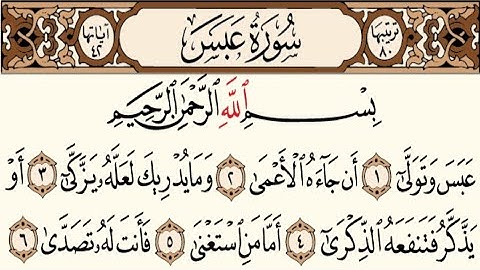 ترتيبها ٨٠ سُورَةُ عَبَسَ آياتها ٤٢
بِسْمِ ٱللَّهِ ٱلرَّحْمَٰنِ ٱلرَّحِيمِ
عَبَسَ وَتَوَلَّىٰٓ ١ أَن جَآءَهُ ٱلْأَعْمَىٰ ٢ وَمَا يُدْرِيكَ لَعَلَّهُۥ يَزَّكَّىٰٓ ٣ أَوْ
يَذَّكَّرُ فَتَنفَعَهُ ٱلذِّكْرَىٰٓ ٤ أَمَّا مَنِ ٱسْتَغْنَىٰ ٥ فَأَنتَ لَهُۥ تَصَدَّىٰ ٦